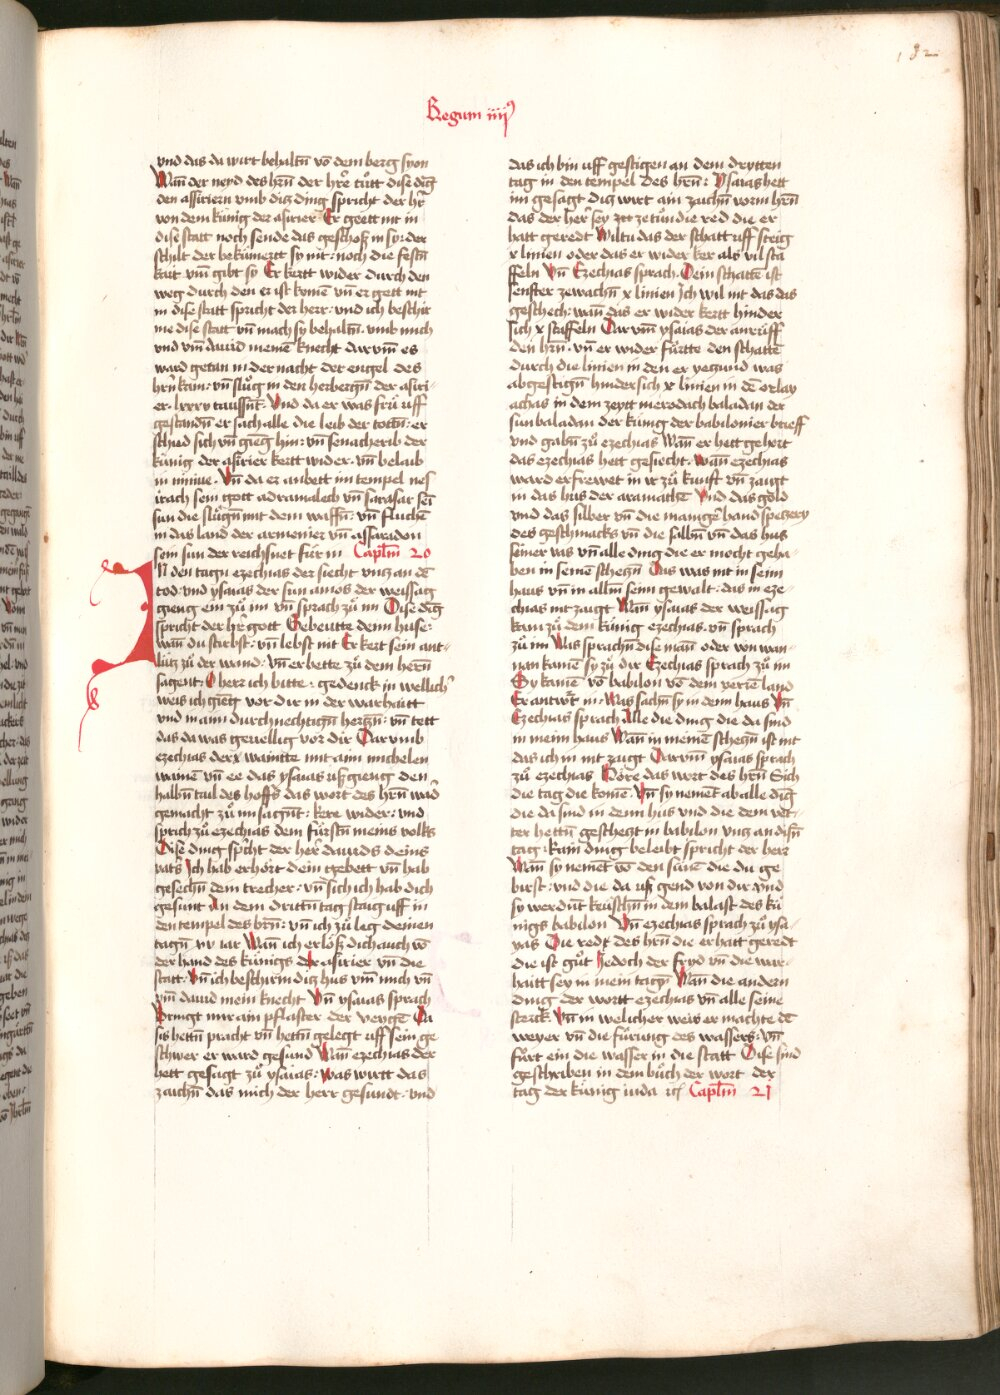 182
Regum iiij
vnd das da wirt behaltn̄ vō dem berg syon
Wān der neyd des hr̄n der hr̄e tůtt dise dīg
den assiriern vmb diz ding spricht der hr̄
von dem kúnig der asirier Er geett nit in
dise statt noch sende das geschoß in sy: der
schilt der bekúmertt sy nit: noch die festn̄
kait vm̄ gibt sy Er kertt wider durch den
weg durch den er ist komē vn̄ er gett nit
in dise statt spricht der herr: vnd ich beschir
me dise statt vn̄ mach sy behaltn̄ vmb mich
vnd vm̄ dauid meinē knecht dar vm̄ es
ward getan in der nacht der engel des
hr̄n kam: vn̄ slůg in den herbergn̄ der asiri
er lxxxv taussn̄t: Vnd da er was frů uff
gestandn̄ er sach alle die leib der totn̄: er
schied sich vn̄ gieng hin: vn̄ senacherib der
kúnig der asirier kertt wider: vn̄ belaib
in niniue: Vn̄ da er anbett im tempel nes
irach sein gott adramalech vn̄ sarasar sei
sun die slůgn̄ mit dem waffn̄: vn̄ fluchē
in das land der armenier vn̄ assaradon
sein sun der reichsnet fúr in Caplm̄ 20
IN den tagn̄ ezechias der siecht vntz an dē
tod: vnd ysaias der sun amos der weissag
gieng ein zů im vn̄ sprach zů im Dise dīg
spricht der hr̄ gott Gebeutte denn huse:
wān du stirbst: vn̄ lebst nit Er kert sein ant
lútz zů der wand: vn̄ er bette zů dem herrn̄
sagent: O herr ich bitte: gedenck in wellich̾
weis ich gieng vor dir in der warhaitt
vnd in aim durchnechtign̄ hertzn̄: vn̄ tett
das da was geuellig vor dir Dar vmb
ezechias der waintte mit aim michelen
wainē vn̄ ee das ysaias ußgieng den
halbn̄ tail des hoffs das wort des hr̄n wād
gemacht zů im sagn̄t: kere wider: vnd
sprich zů ezechias dem fúrstn̄ meins volks
Dise ding sp̾cht der her̾ dauids deins
vat̾s Ich hab erhört dein gebett vn̄ hab
gesechn̄ dein trecher: vn̄ sich ich hab dich
gesunt An dem drittn̄ tag staig uff in
den tempel des hr̄n: vn̄ ich zů leg deinen
tagn̄ xv iar Wān ich erlöß dich auch vō
der hand des kúnigs der asirier vn̄ die
statt: Vn̄ ich beschirm diz hus vm̄ mich vn̄
vm̄ dauid mein knecht Vn̄ ysaias sprach
Bringt mir ain pflaster der veygē Da
sis hettn̄ pracht vn̄ hettn̄ gelegt uff sein ge
schwer er ward gesund Wān ezechias der
hett gesagt zů ysaias: was wirtt das
zaichn̄ das mich der herr gesundt: vnd
das ich bin uff gestigen an dem drytten
tag in den tempel des hr̄n: Ysaias hett
im gesagt diz wirt ain zaichn̄ vorm hr̄n
das der her̾ sey zetzetun die red die er
hatt geredt Wiltu das der schatt uff steig
x linien oder das er wider ker als vil sta
ffeln Vn̄ Ezechias sprach: Dein schatte ist
senfter zewachn̄ x linien Ich wil nit das das
geschech: wān das er wider kertt hinder
sich x staffeln Dar vm̄ ysaias der anrúff
den hr̄n: vn̄ er wider fúrtte den schattē
durch die linien in den er yetzund was
abgestign̄ hindersich x linien in dē orlay
achas in dem zeytt merodach baladan der
sun baladan der kúnig der babilonier brieff
vnd gabn̄ zů ezechias Wān er hett gehort
das ezechias hett gesiecht: Wān ezechias
ward erfrewet in ir zů kunfft vn̄ zaigt
in das hus der aramathē Vnd das gold
vnd das silber vn̄ die manigē hand spetzery
des geschmacks vn̄ die salbn̄ vn̄ das hus
seiner vas vn̄ alle ding die er mocht geha
ben in seinē schetzn̄ Das was nit in seim
haus vn̄ in allm̄ seim gewalt: das in eze
chias nit zaigt Wān ysaias der weissag
kam zů dem kúnig ezechias: vn̄ sprach
zů im Was sprachn̄ dise man̄ oder von wan
nan kamē sy zů dir Ezechias sprach zů im
Sy kamē vō babilon vō dem verrē land
Er antw̾t in: Was sachn̄ sy in deim haus Vn̄
Ezechias sprach Alle die ding die da sind
in meim haus Wān in meinē schetzn̄ ist nit
das ich in nit zaigt Dar vm̄ ysaias sprach
zů ezechias Höre das wort des hr̄n Sich
die tag die komē: Vn̄ sy nement ab alle dīg
die da sind in deim hus vnd die dein vet
ter hettn̄ geschetzt in babilon vntz an disn̄
tag: kain ding beleibt spricht der herr
Wān sy nemēt vō den súnē die du ge
birst: vnd die da uß gend von dir vnd
sy werdn̄t keuschn̄ in dem balast des kú
nigs babilon Vn̄ ezechias sprach zů ysa
yas Die redt des hr̄n die er hatt geredt
die ist gůt Jedoch der fryd vn̄ die war
haitt sey in mein tagn̄ Wān die andern
ding der wortt ezechias vn̄ alle seine
sterck: Vn̄ in welicher weis er machte dē
weyer vn̄ die fúrung des wassers: vn̄
fúrt ein die wasser in die statt Dise sind
geschriben in dem bůch der wort der
tag der kúnig iuda zc Caplm̄ 21